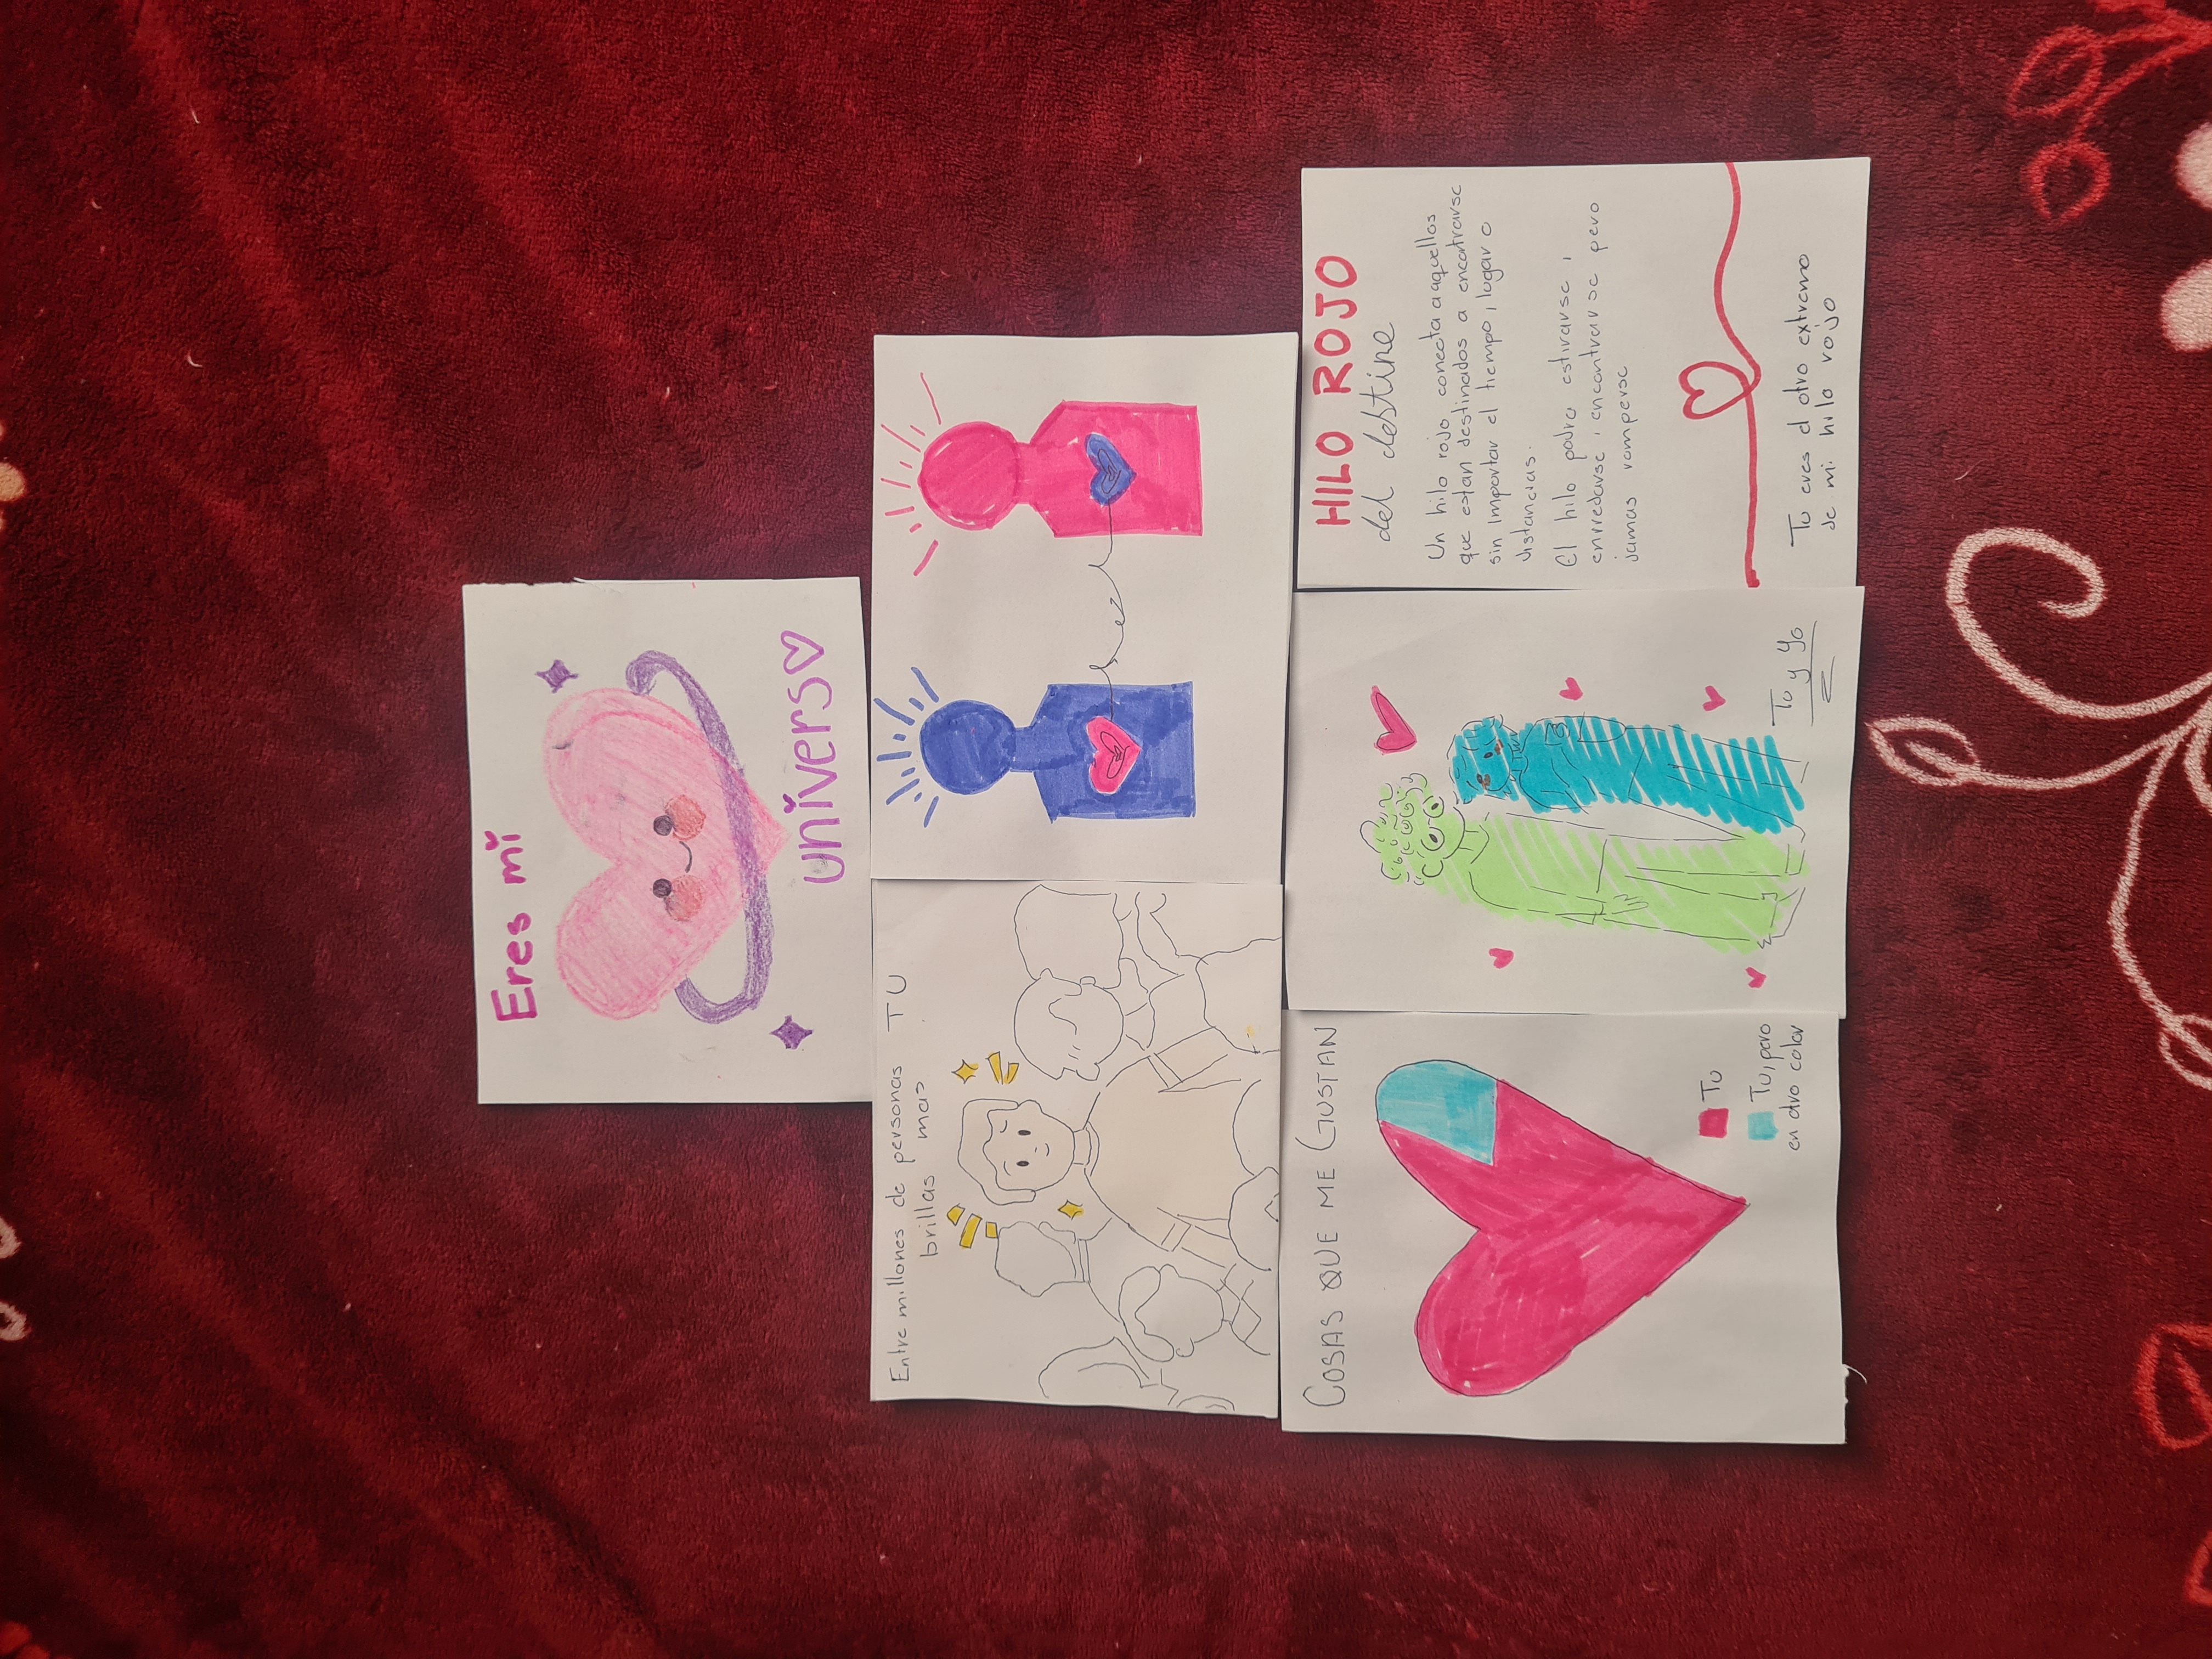 Eres mi
univers♡
Entre millones de personas TU
brillas mas
COSAS QUE ME GUSTAN
Tu
Tu, pero
en otro color
Tu y Yo
HILO ROJO
del destino
Un hilo rojo conecta a aquellos
que estan destinados a encontrarse
sin importar el tiempo, lugar o
distancias.
El hilo podra estirarse,
enredarse, encontrarse pero
jamas romperse
Tu eres el otro extremo
de mi hilo rojo